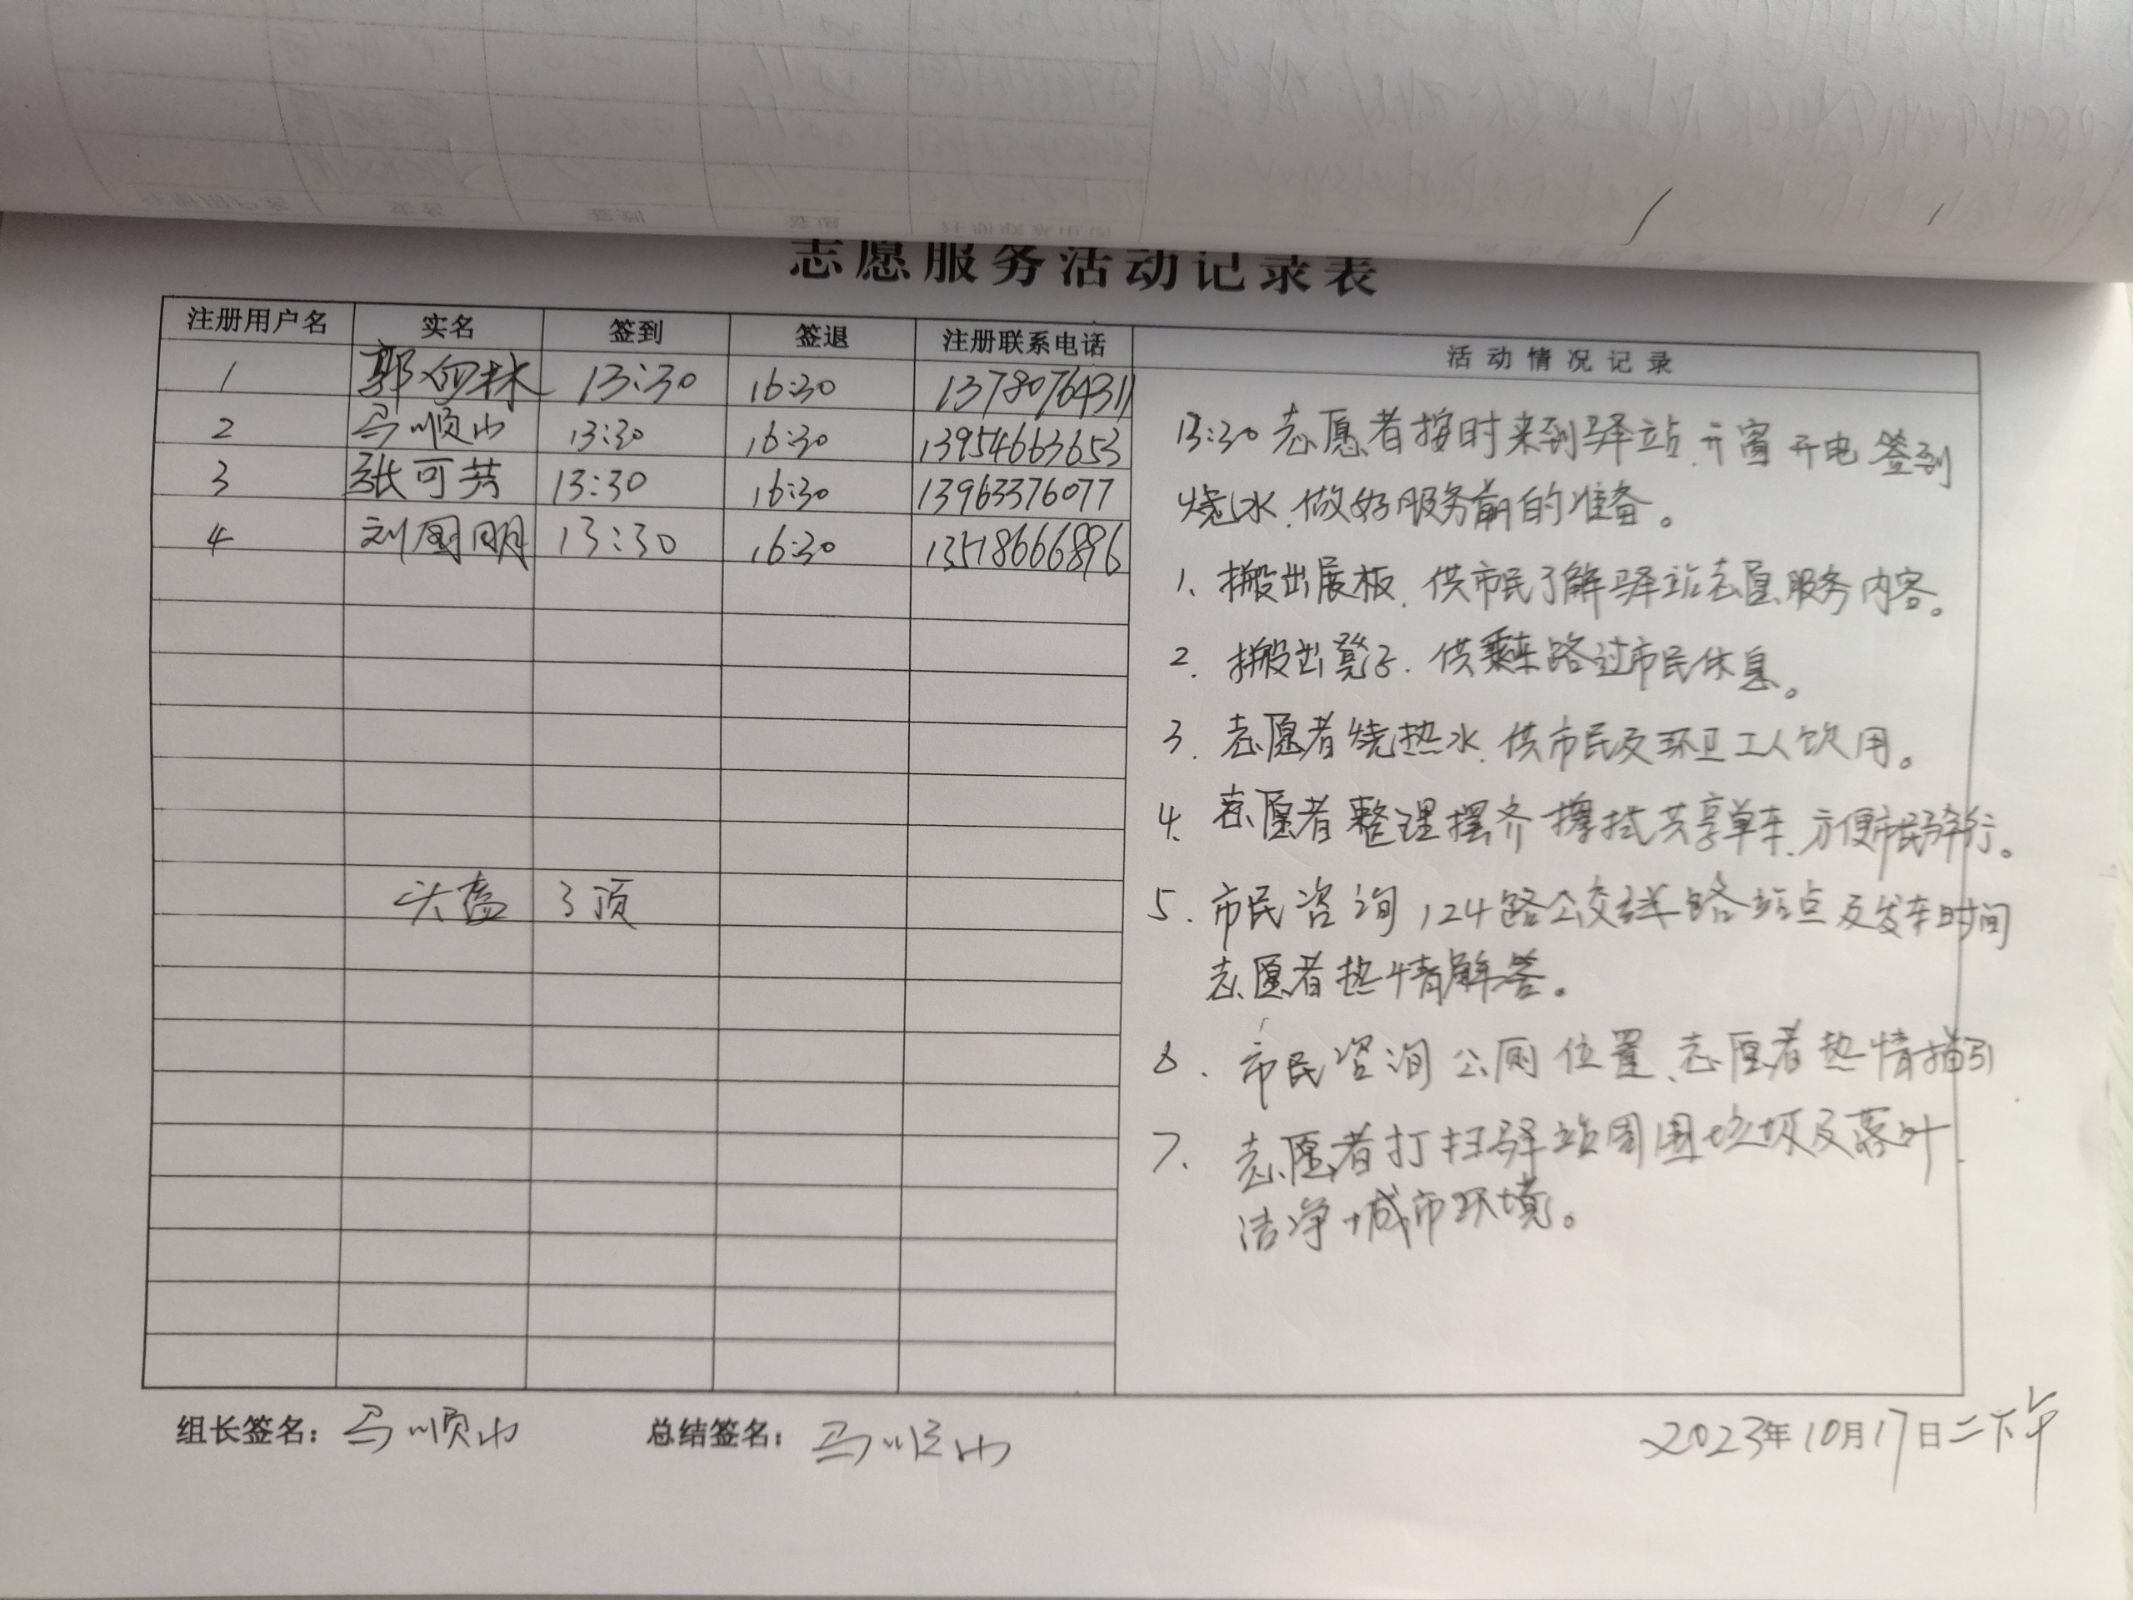 志愿服务活动记录表
注册用户名 实名 签到 签退 注册联系电话 活动情况记录
1 郭 林 13:30 16:30 13780764311
2 马顺山 13:30 16:30 13954663653
3 张可芳 13:30 16:30 13963376077
4 刘国明 13:30 16:30 13518666896
头盔 3顶
13:30志愿者按时来到驿站.开窗开电签到
烧水.做好服务前的准备。
1、搬出展板.供市民了解驿站志愿服务内容。
2.搬出凳子.供乘车路过市民休息。
3.志愿者烧热水.供市民及环卫工人饮用。
4.志愿者整理摆齐擦拭共享单车.方便市民骑行。
5.市民咨询124路公交线路站点及发车时间
志愿者热情解答。
6.市民咨询公厕位置、志愿者热情指引
7、志愿者打扫驿站周围垃圾及落叶
洁净城市环境。
组长签名：马顺山 总结签名：马顺山 2023年10月17日二下午